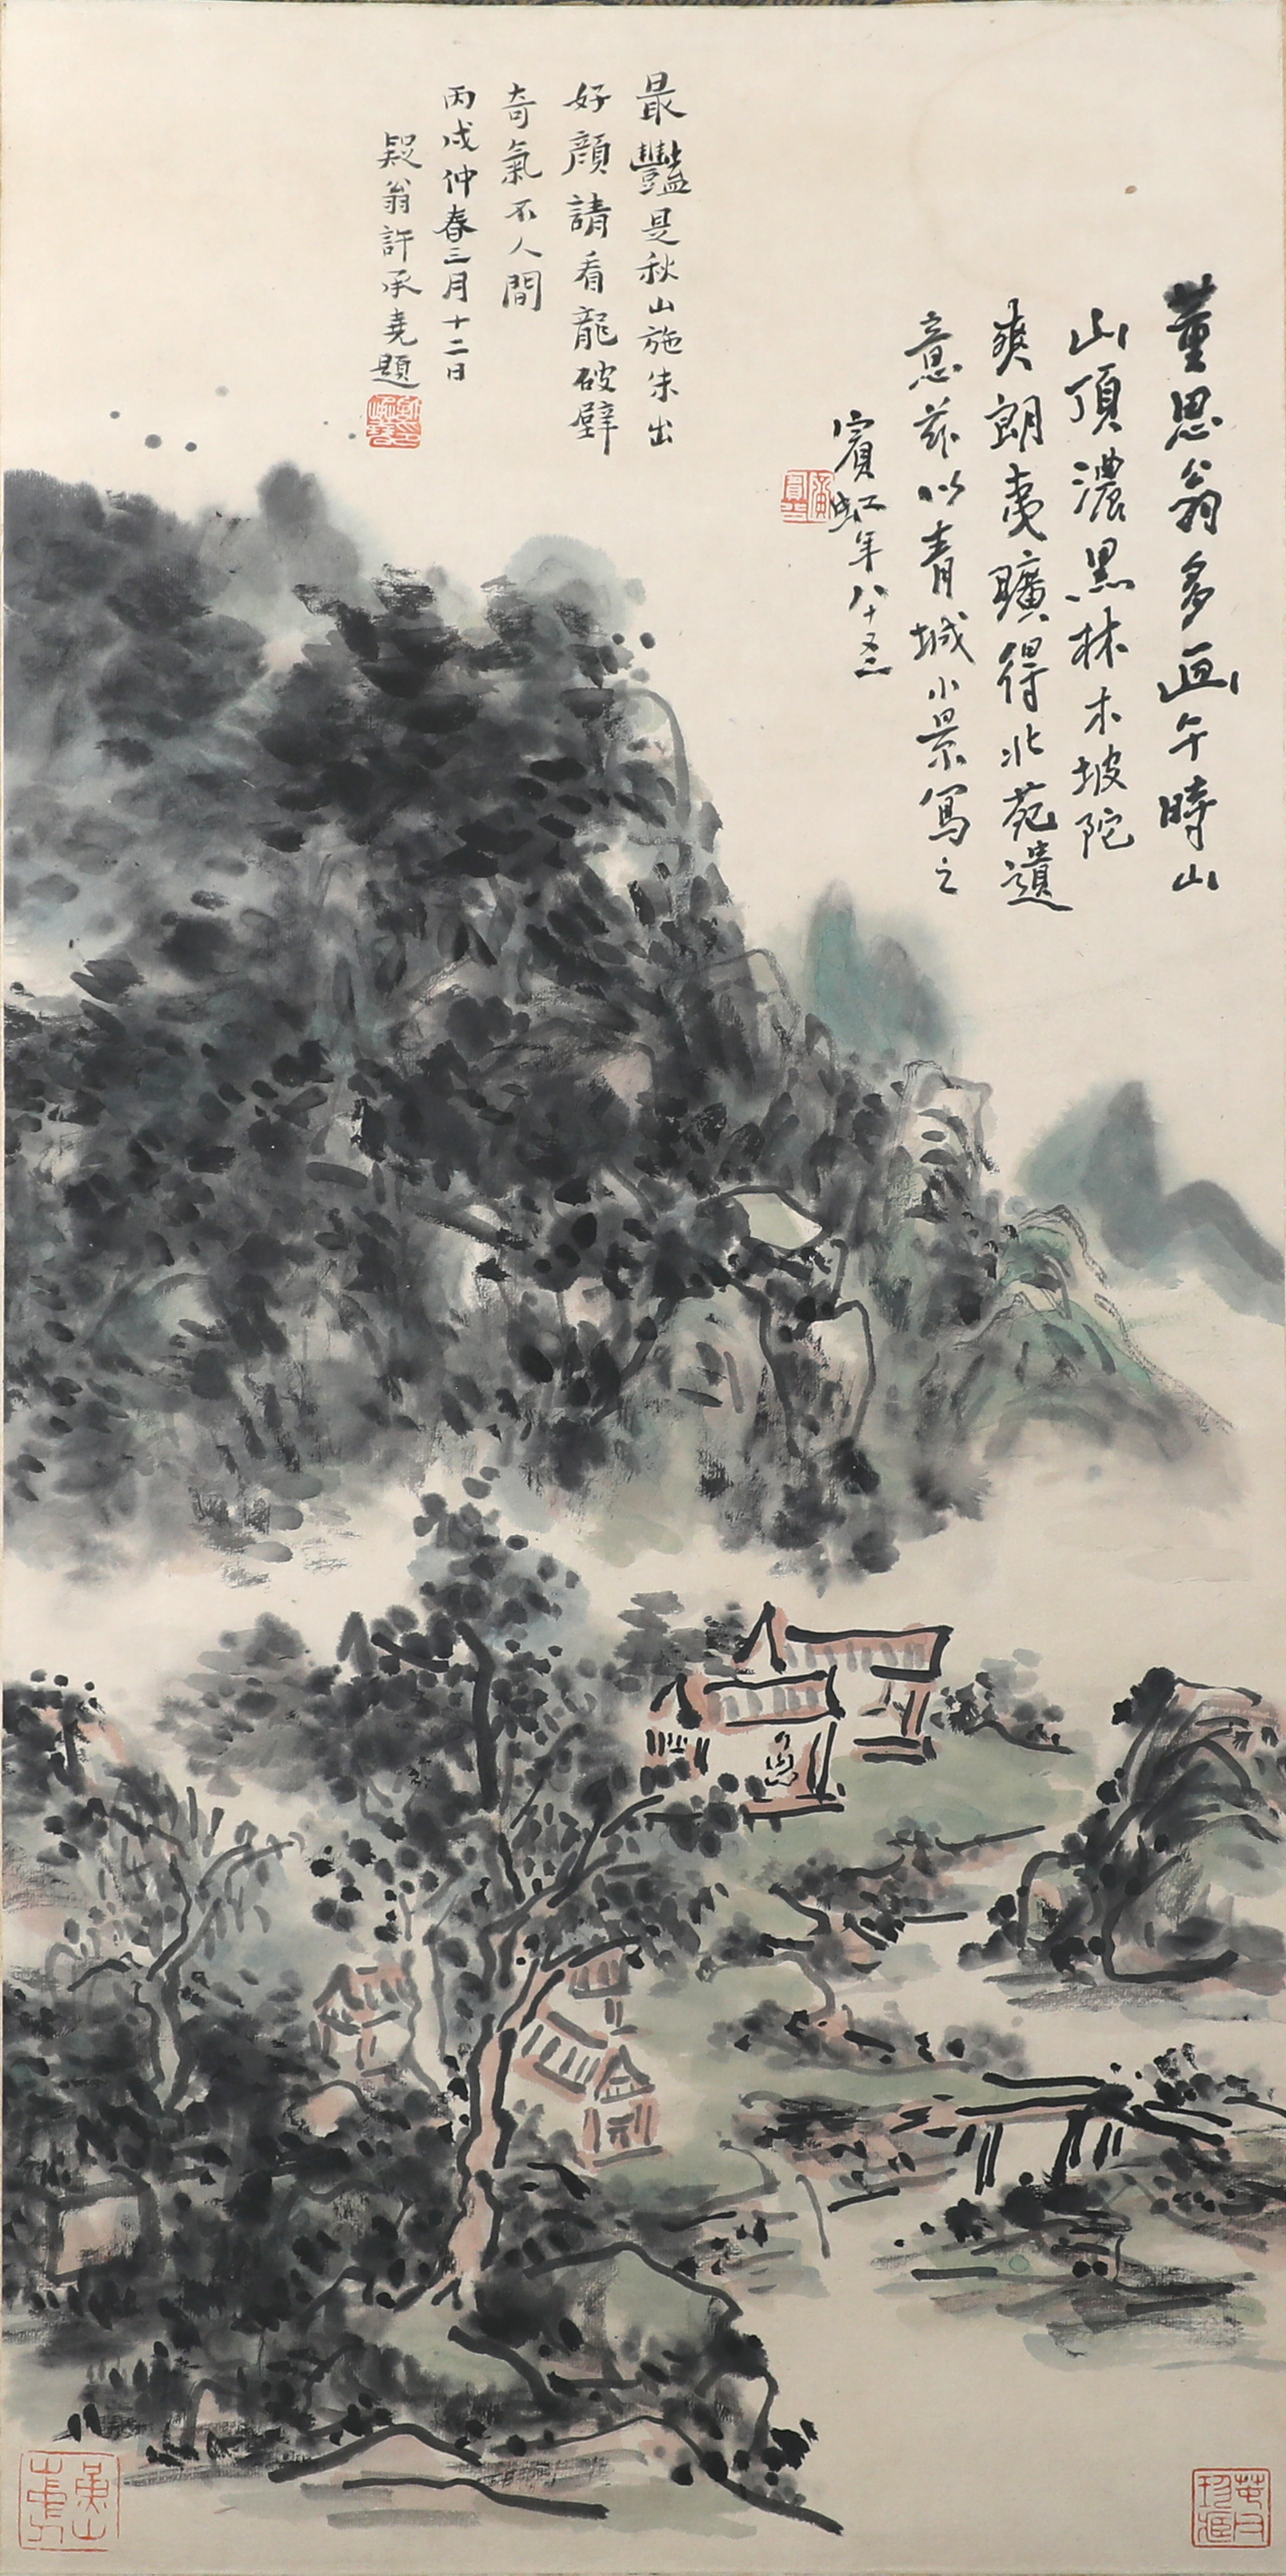 董思翁多画午時山
山頂濃黑林木坡陀
爽朗夷曠得北苑遺
意茲以青城小景寫之
賓虹年八十又三
最豔是秋山施朱出
好顏請看龍破壁
奇氣不人間
丙戌仲春三月十二日
疑翁許承堯題
黃山